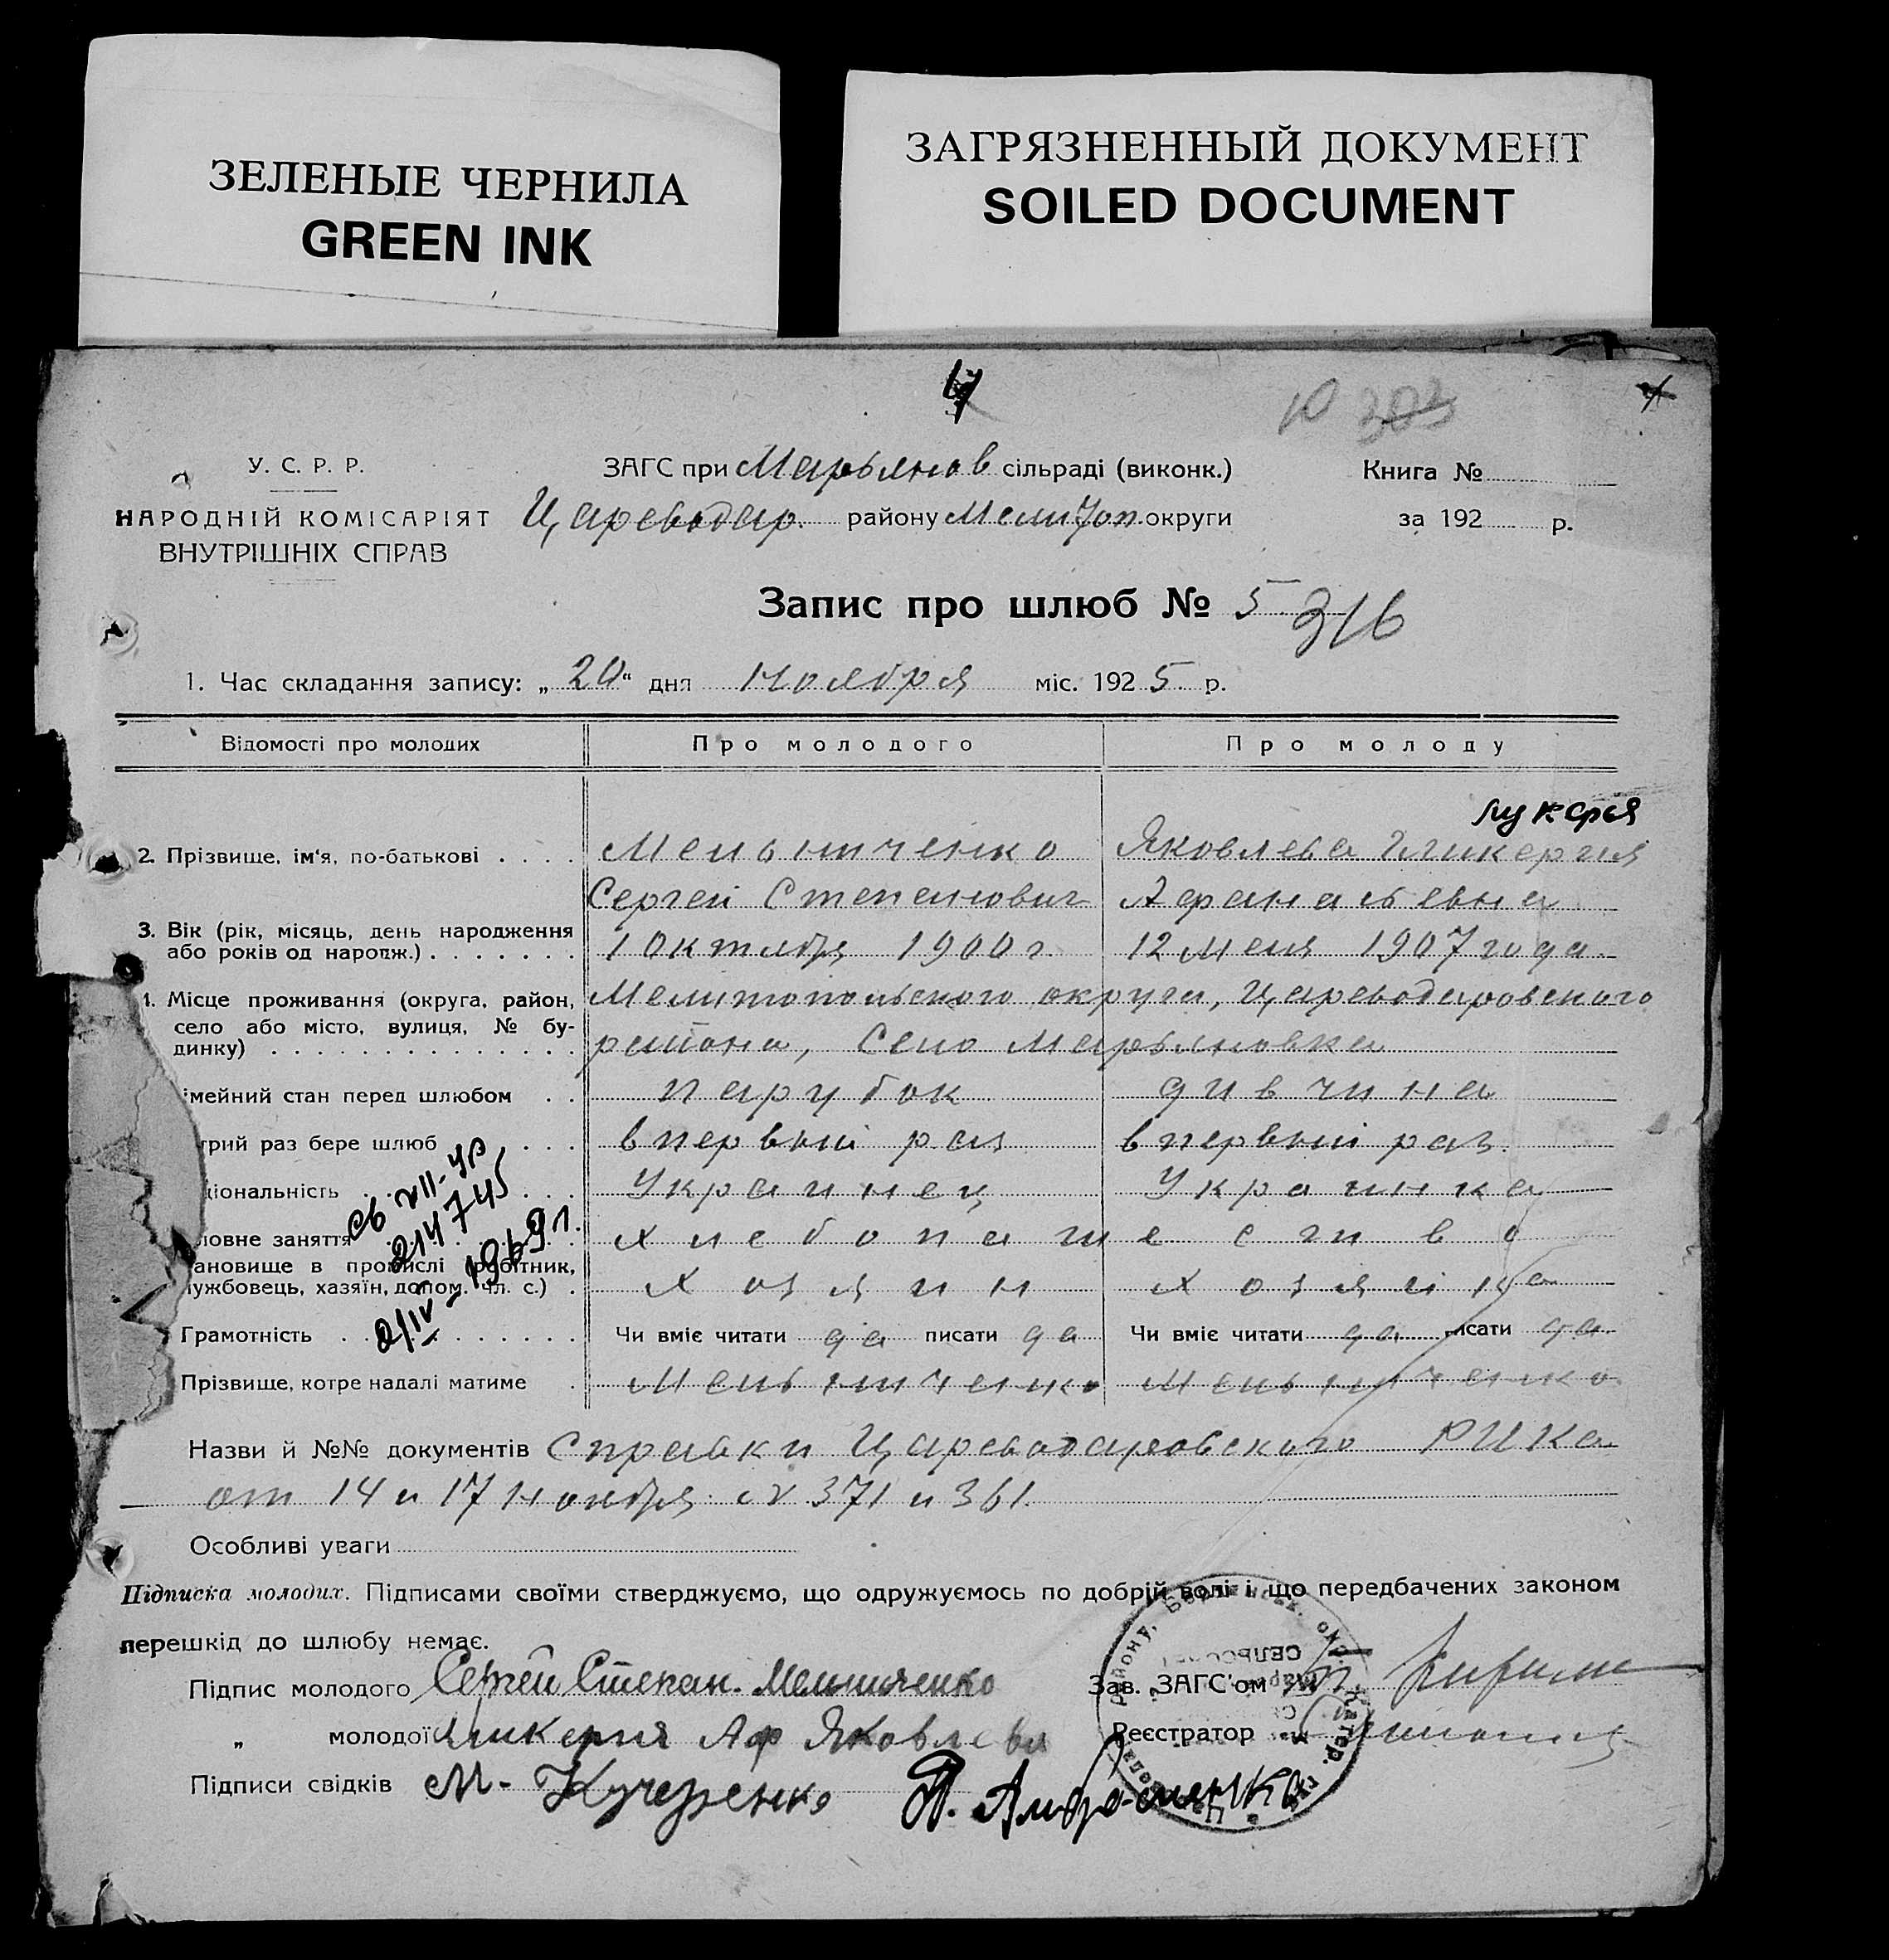 ЗЕЛЕНЫЕ ЧЕРНИЛА
GREEN INK
ЗАГРЯЗНЕННЫЙ ДОКУМЕНТ
SOILED DOCUMENT
10 303
У. С. Р. Р.
НАРОДНІЙ КОМІСАРІЯТ
ВНУТРІШНІХ СПРАВ
ЗАГС при Марьянов сільраді (виконк.)
Цареводар. району Мелитоп. округи
Книга №
за 192 р.
Запис про шлюб № 5 316
1. Час складання запису: „ 20 “ дня Ноября міс. 1925 р.
Відомості про молодих Про молодого Про молоду
Лукерья
2. Прізвище, ім'я, по-батькові . . . . Мельниченко Яковлева Гликерия
Сергей Степанович Афанасьевна
3. Вік (рік, місяць, день народження
або років од народж.) . . . . . . . 1 Октября 1900 г. 12 Мая 1907 года.
Місце проживання (округа, район, Мелитопольского округа, Цареводаровского
село або місто, вулиця, № бу-
динку) . . . . . . . . . . . . . . района, Село Марьяновка
імейний стан перед шлюбом . . парубок дивчина
трий раз бере шлюб . . . впервый раз впервый раз.
ціональність . . . Украинец Украинка
ловне заняття хлебопашество
ановище в промислі (робітник,
лужбовець, хазяїн, допом. чл. с.) . Хозяин Хозяйка
св VII-ЧР
214745
2/IV-1969г.
Грамотність . . . Чи вміє читати да писати да Чи вміє читати да писати да
Прізвище, котре надалі матиме . Мельниченко Мельниченко
Назви й №№ документів Справки Цареводаровского РИКа
от 14 и 17 Ноября № 371 и 361.
Особливі уваги
Підписка молодих. Підписами своїми стверджуємо, що одружуємось по добрій волі і що передбачених законом
перешкід до шлюбу немає.
Підпис молодого Сергей Степан. Мельниченко Зав. ЗАГС'ом
„ молодої Гликерия Аф Яковлева Реєстратор
Підписи свідків М. Кучеренко